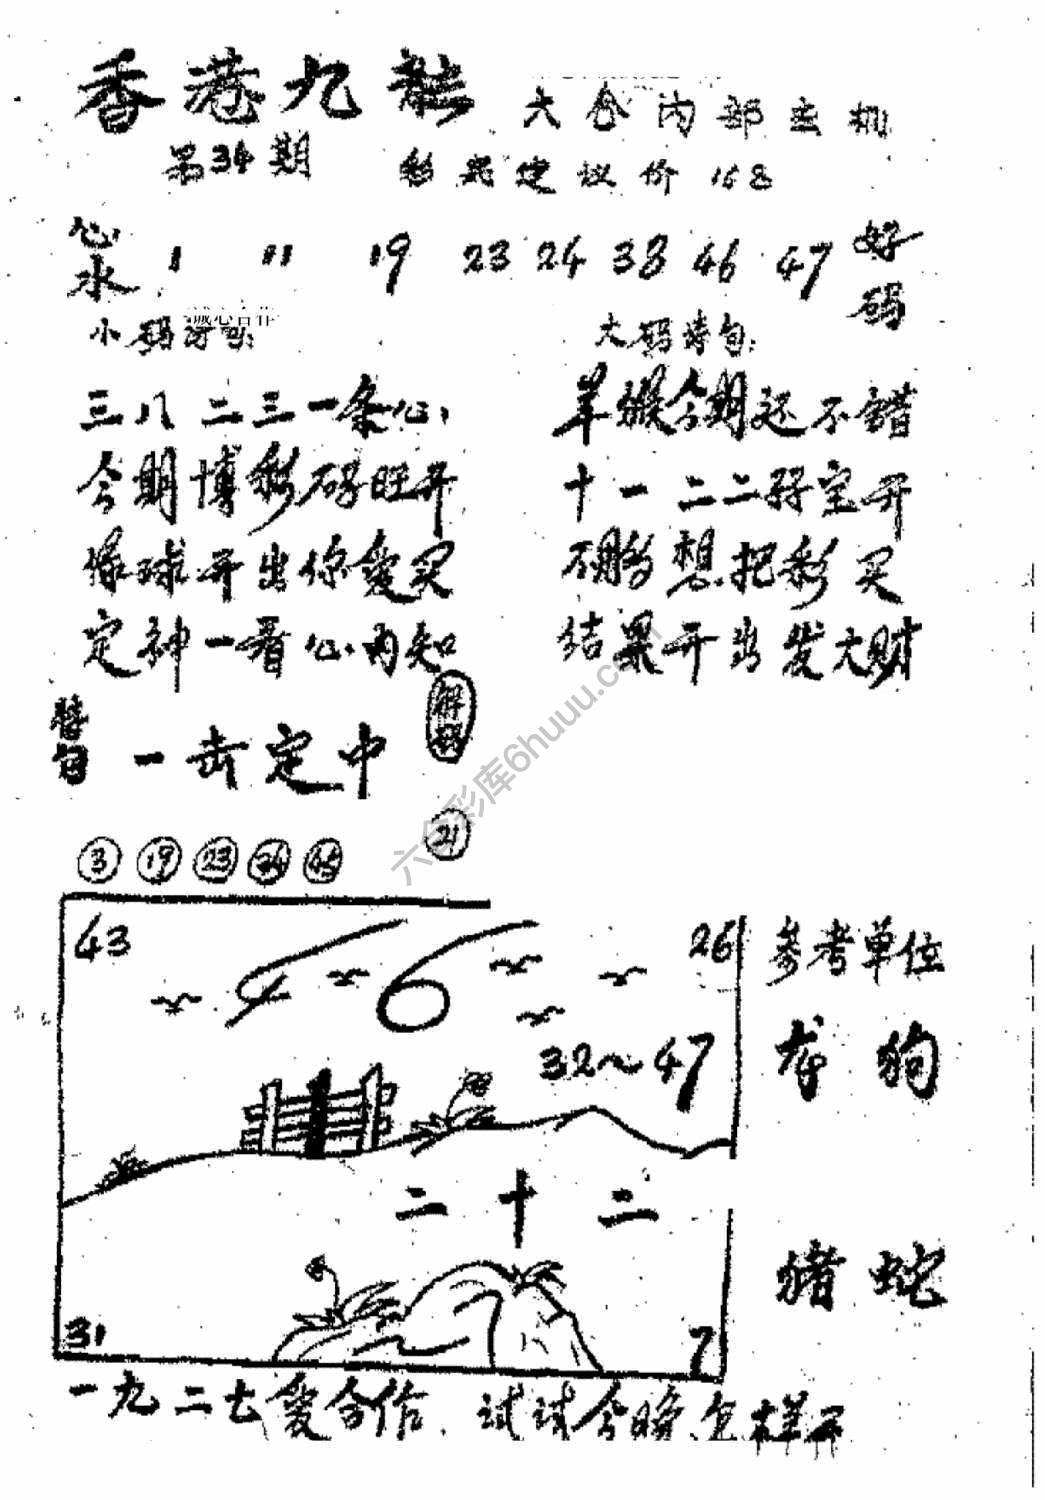 香港九龍
大会内部玄机
第34期
彩友建议价 168
心水 1 11 19 23 24 38 46 47 好码
诚心合作
小码诗句:
大码诗句:
三八二三一条心
羊猴今期还不错
今期博彩码旺开
十一二二孖宝开
绿球开出你爱买
想把彩买
定神一看心内知
结果开出发大财
一击定中
3 19 23 34 45
21
六合彩库6huuu.com
43
46
26
参考单位
32~47
龙狗
二十二
猪蛇
31
7
一九二七爱合作,试试今晚怎样